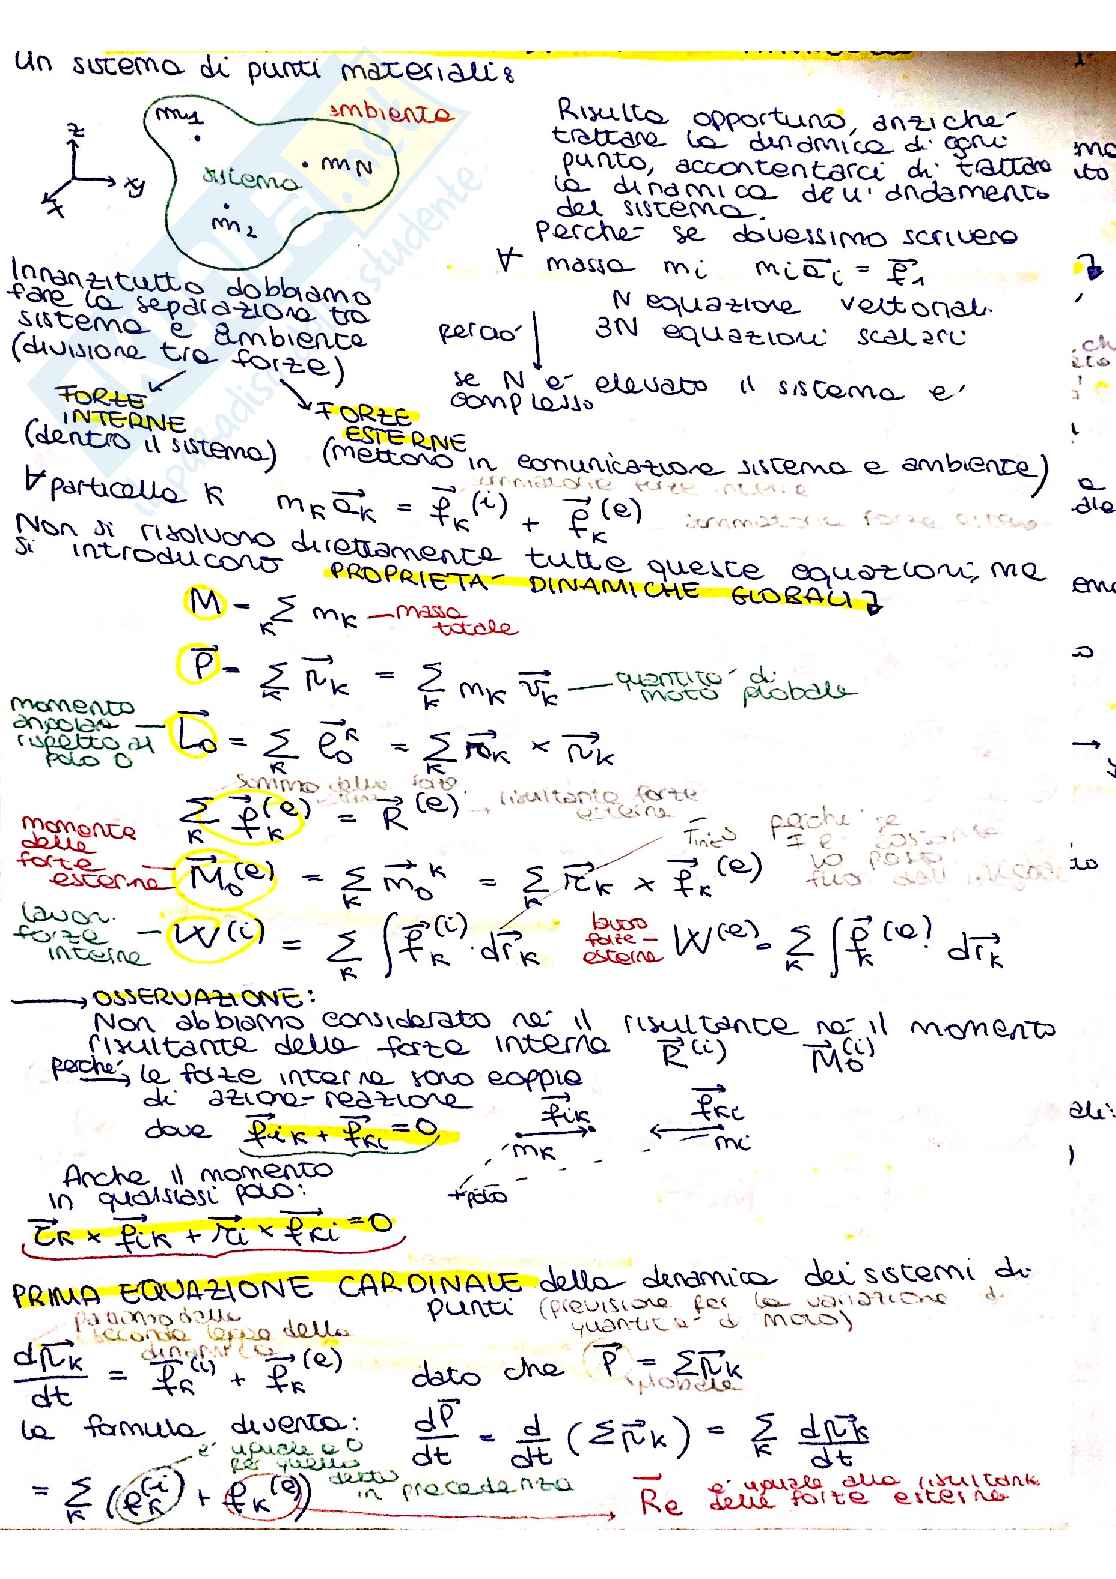 Un sistema di punti materiali:
ambiente
m1
mN
sistema
m2
z
y
x
Risulta opportuno, anziché
trattare la dinamica di ogni
punto, accontentarci di trattare
la dinamica dell'andamento
del sistema.
Perché se dovessimo scrivere
∀ massa mi mi a⃗i = f⃗1
N equazione vettoriali.
perciò 3N equazioni scalari
se N è elevato il sistema è
complesso
Innanzitutto dobbiamo
fare la separazione tra
sistema e ambiente
(divisione tra forze)
FORZE
INTERNE
(dentro il sistema)
FORZE
ESTERNE
(mettono in comunicazione sistema e ambiente)
∀ particella K mK a⃗K = f⃗K(i) + f⃗K(e)
Non si risolvono direttamente tutte queste equazioni, ma
si introducono PROPRIETÀ DINAMICHE GLOBALI
M = Σ_K mK — massa
totale
P⃗ = Σ_K p⃗K = Σ_K mK v⃗K — quantità di
moto globale
momento
angolare
rispetto al
polo O
L⃗o = Σ_K l⃗oK = Σ_K r⃗K × p⃗K
Σ_K f⃗K(e) = R⃗(e) risultante forze
esterne
momento
delle
forze
esterne
M⃗o(e) = Σ_K m⃗oK = Σ_K r⃗K × f⃗K(e)
lavori
forze
interne
W(i) = Σ_K ∫ f⃗K(i) · dr⃗K
lavoro
forze
esterne
W(e) = Σ_K ∫ f⃗K(e) · dr⃗K
→ OSSERVAZIONE:
Non abbiamo considerato né il risultante né il momento
risultante delle forze interne R⃗(i) M⃗o(i)
perché → le forze interne sono coppie
di azione-reazione
dove f⃗iK + f⃗Ki = 0
f⃗iK
f⃗Ki
mK
mi
+ polo
Anche il momento
in qualsiasi polo:
r⃗K × f⃗iK + r⃗i × f⃗Ki = 0
PRIMA EQUAZIONE CARDINALE della dinamica dei sistemi di
punti (previsione per la variazione di
quantità di moto)
partiamo dalla
seconda legge della
dinamica
dp⃗K/dt = f⃗K(i) + f⃗K(e) dato che P⃗ = Σp⃗K
globale
la formula diventa: dP⃗/dt = d/dt (Σp⃗K) = Σ_K dp⃗K/dt
è uguale a 0
per quello
detto
in precedenza
= Σ_K (f⃗K(i) + f⃗K(e))
R⃗e è uguale alla risultante
delle forze esterne